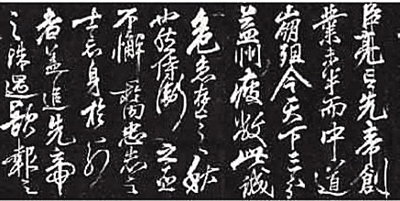 臣亮言先帝創
業未半而中道
崩殂今天下三分
益州疲敝此誠
危急存亡之秋
也然侍衛之臣
不懈於內忠志之
士忘身於外
者蓋追先帝
之殊遇欲報之